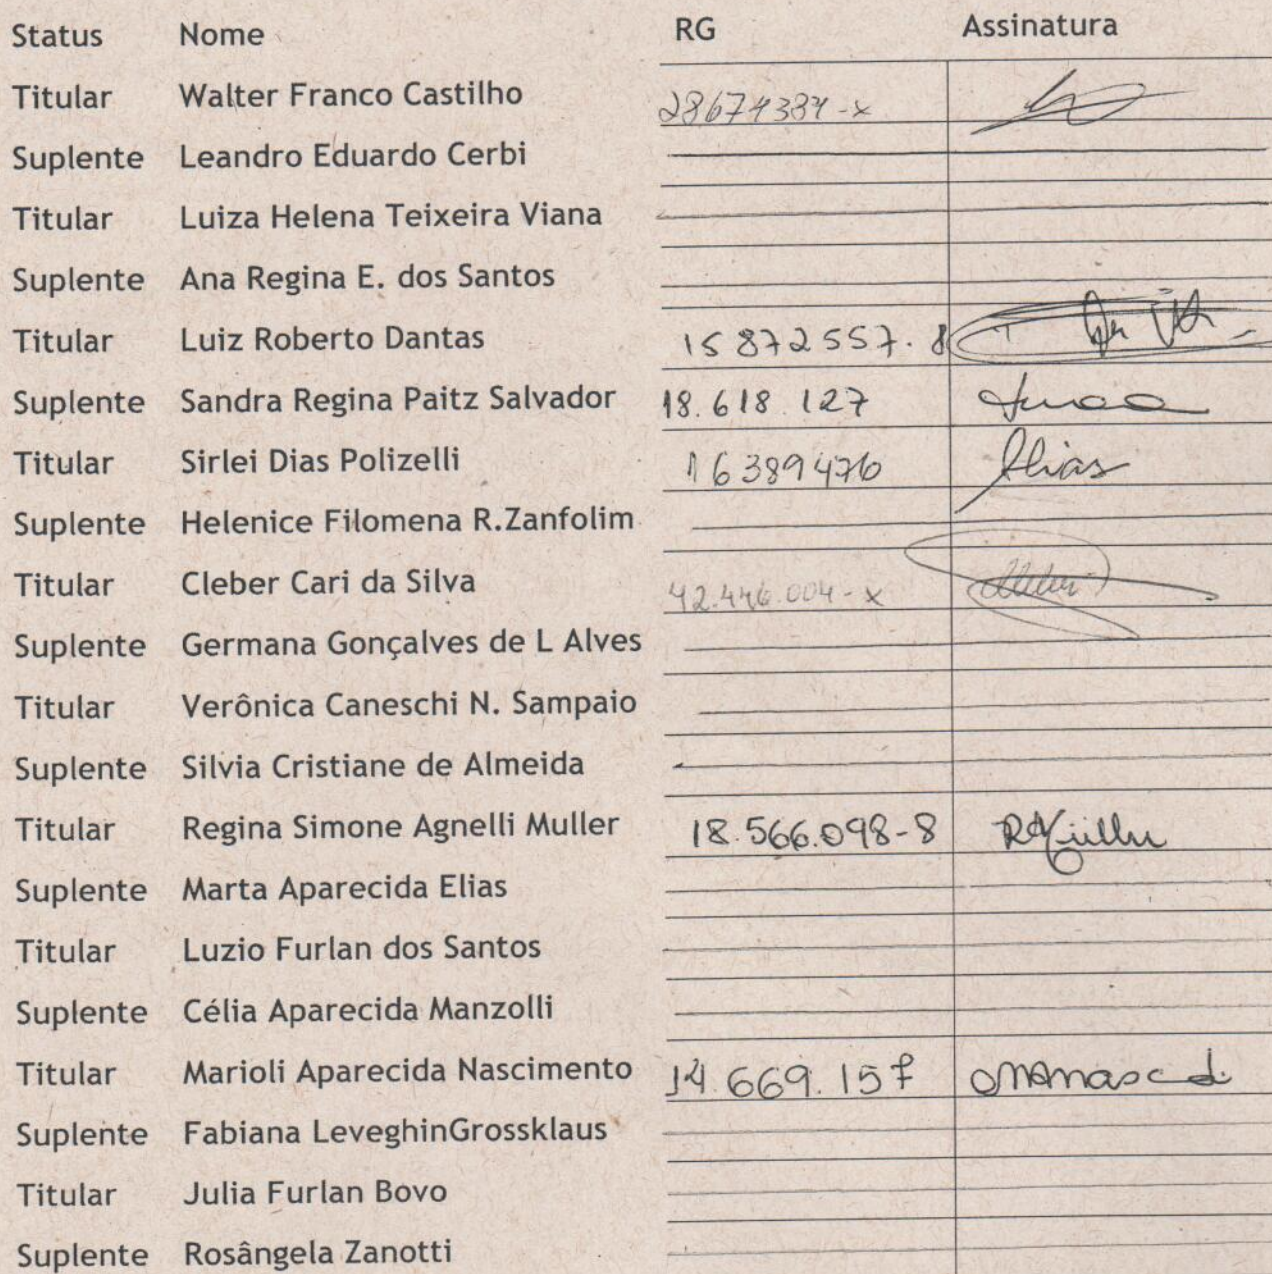 Status Nome RG Assinatura
Titular Walter Franco Castilho 28674384-x
Suplente Leandro Eduardo Cerbi
Titular Luiza Helena Teixeira Viana
Suplente Ana Regina E. dos Santos
Titular Luiz Roberto Dantas 15872557.8
Suplente Sandra Regina Paitz Salvador 18.618.127
Titular Sirlei Dias Polizelli 16389476
Suplente Helenice Filomena R.Zanfolim
Titular Cleber Cari da Silva 42.446.004-x
Suplente Germana Gonçalves de L Alves
Titular Verônica Caneschi N. Sampaio
Suplente Silvia Cristiane de Almeida
Titular Regina Simone Agnelli Muller 18.566.098-8
Suplente Marta Aparecida Elias
Titular Luzio Furlan dos Santos
Suplente Célia Aparecida Manzolli
Titular Marioli Aparecida Nascimento 14.669.157
Suplente Fabiana LeveghinGrossklaus
Titular Julia Furlan Bovo
Suplente Rosângela Zanotti